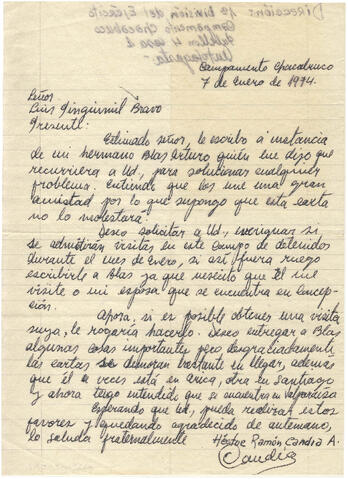 Dirección: 1ª División del Ejército
Campamento Chacabuco
Pabellón 4
Antofagasta
Campamento Chacabuco
7 de Enero de 1974.
Señor
Luis Bravo
Presente:
Estimado señor, le escribo a instancia
de mi hermano Blas Arturo quién me dijo que
recurriera a Ud, para solucionar cualquier
problema. Entiendo que les une una gran
amistad por lo que supongo que esta carta
no lo molestará.
Deseo solicitar a Ud, averiguar si
se admitirán visitas en este campo de detenidos
durante el mes de Enero, si así fuera ruego
escribirle a Blas ya que necesito que él me
visite o mi esposa que se encuentra en Concep-
ción.
Ahora, si es posible obtener una visita
suya, le rogaría hacerlo. Deseo entregar a Blas
algunas cosas importantes pero desgraciadamente
las cartas se demoran bastante en llegar, además
que él a veces está en Arica, otra en Santiago
y ahora tengo entendido que se encuentra en Valparaíso
Esperando que Ud, pueda realizar estos
favores y quedando agradecido de antemano,
lo saluda fraternalmente Héctor Ramón Candia A.
Candia